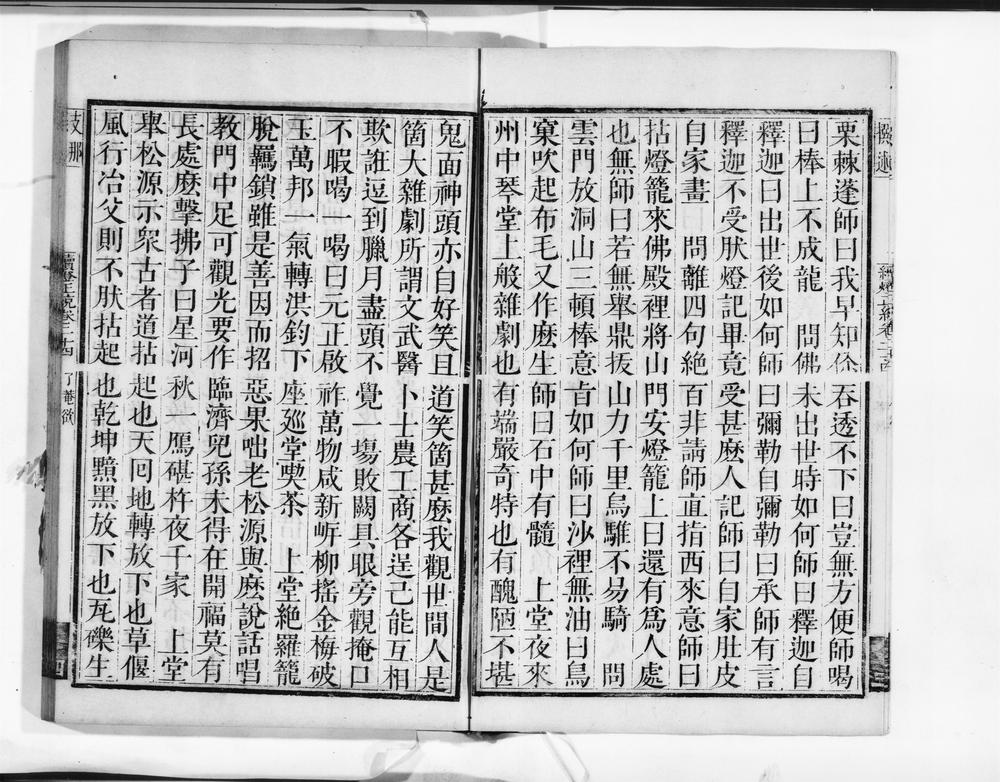 栗棘蓬師曰我早知你吞透不下曰豈無方便師喝
曰棒上不成龍　問佛未出世時如何師曰釋迦自
釋迦曰出世後如何師曰彌勒自彌勒曰承師有言
釋迦不受肰燈記畢竟受甚麽人記師曰自家肚皮
自家畫　問離四句絶百非請師直指西來意師曰
拈燈籠來佛殿裡將山門安燈籠上曰還有爲人處
也無師曰若無舉鼎拔山力千里烏騅不易騎　問
雲門放洞山三頓棒意旨如何師曰沙裡無油曰鳥
窠吹起布毛又作麽生師曰石中有髓　上堂夜來
州中琴堂上般雜劇也有端嚴奇特也有醜陋不堪
鬼面神頭亦自好笑且道笑箇甚麽我觀世間人是
箇大雜劇所謂文武醫卜士農工商各逞己能互相
欺誑逗到臘月盡頭不覺一場敗闕具眼旁觀掩口
不暇喝一喝曰元正啟祚萬物咸新岍柳搖金梅破
玉萬邦一氣轉洪鈞下座廵堂喫茶　上堂絶羅籠
脫羈鎖雖是善因而招惡果咄老松源與麽說話唱
教門中足可觀光要作臨濟兒孫未得在開福莫有
長處麽擊拂子曰星河秋一鴈碪杵夜千家　上堂
舉松源示衆古者道拈起也天囘地轉放下也草偃
風行冶父則不肰拈起也乾坤黯黑放下也瓦礫生
續燈正統卷二十四　了菴欲